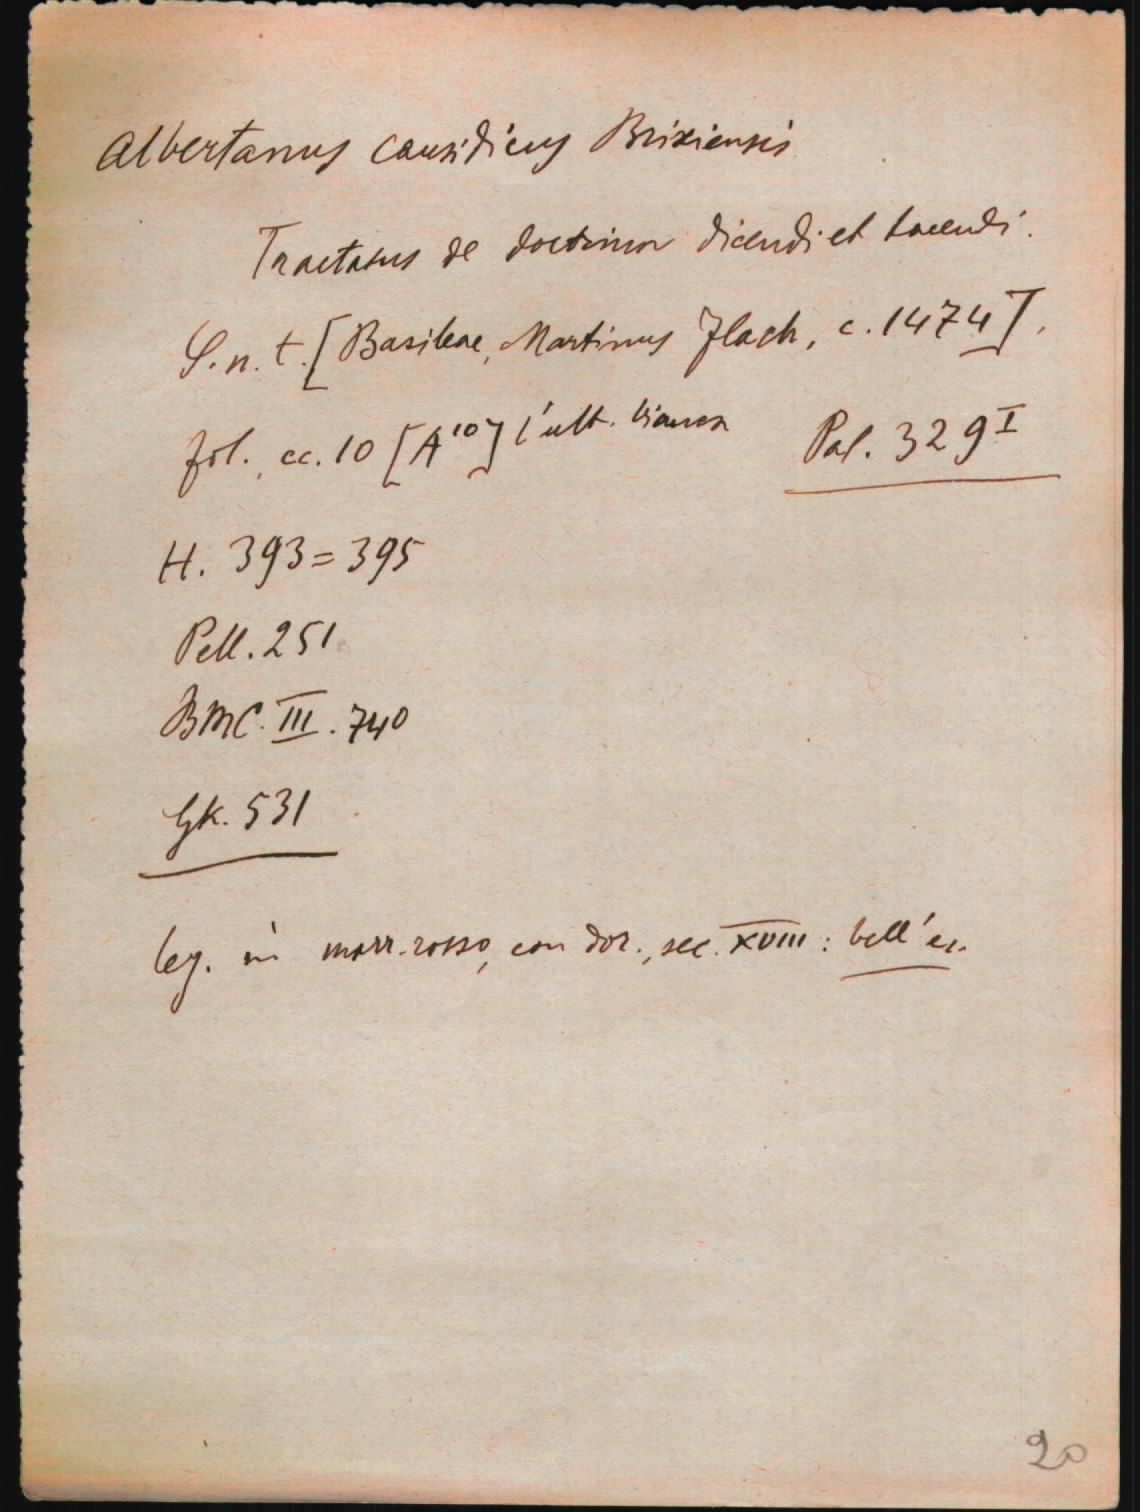 Albertanus causidicus Brixiensis
Tractatus de doctrina dicendi et tacendi.
S. n. t. [Basileae, Martinus Flach, c. 1474],
fol., cc. 10 [A¹⁰] l'ult. bianca
Pal. 329ᴵ
H. 393=395
Pell. 251
BMC. III. 740
Gk. 531
leg. in marr. rosso, con dor., sec. XVIII: bell'es.
20